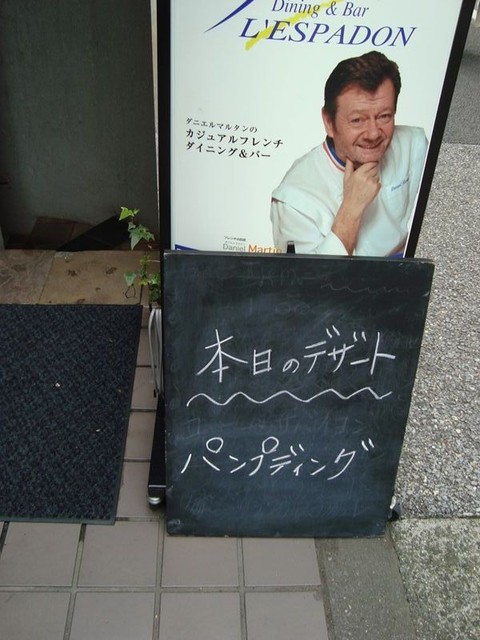 Dining & Bar
L'ESPADON
ダニエルマルタンの
カジュアルフレンチ
ダイニング&バー
Daniel Martin
本日のデザート
パンプディング